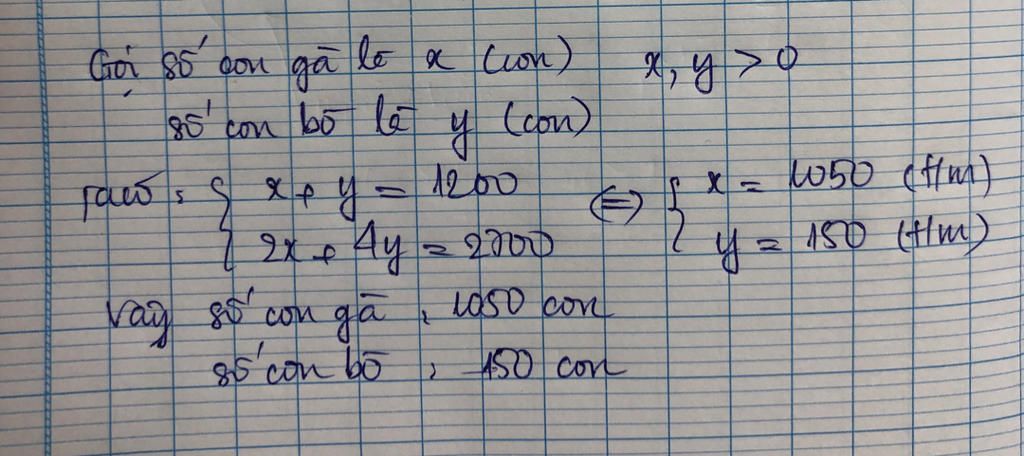 Gọi số con gà là x (con) x, y > 0
số con bò là y (con)
Ta có : { x + y = 1200 <=> { x = 1050 (t/m)
{ 2x + 4y = 2700 { y = 150 (t/m)
Vậy số con gà : 1050 con
số con bò : 150 con